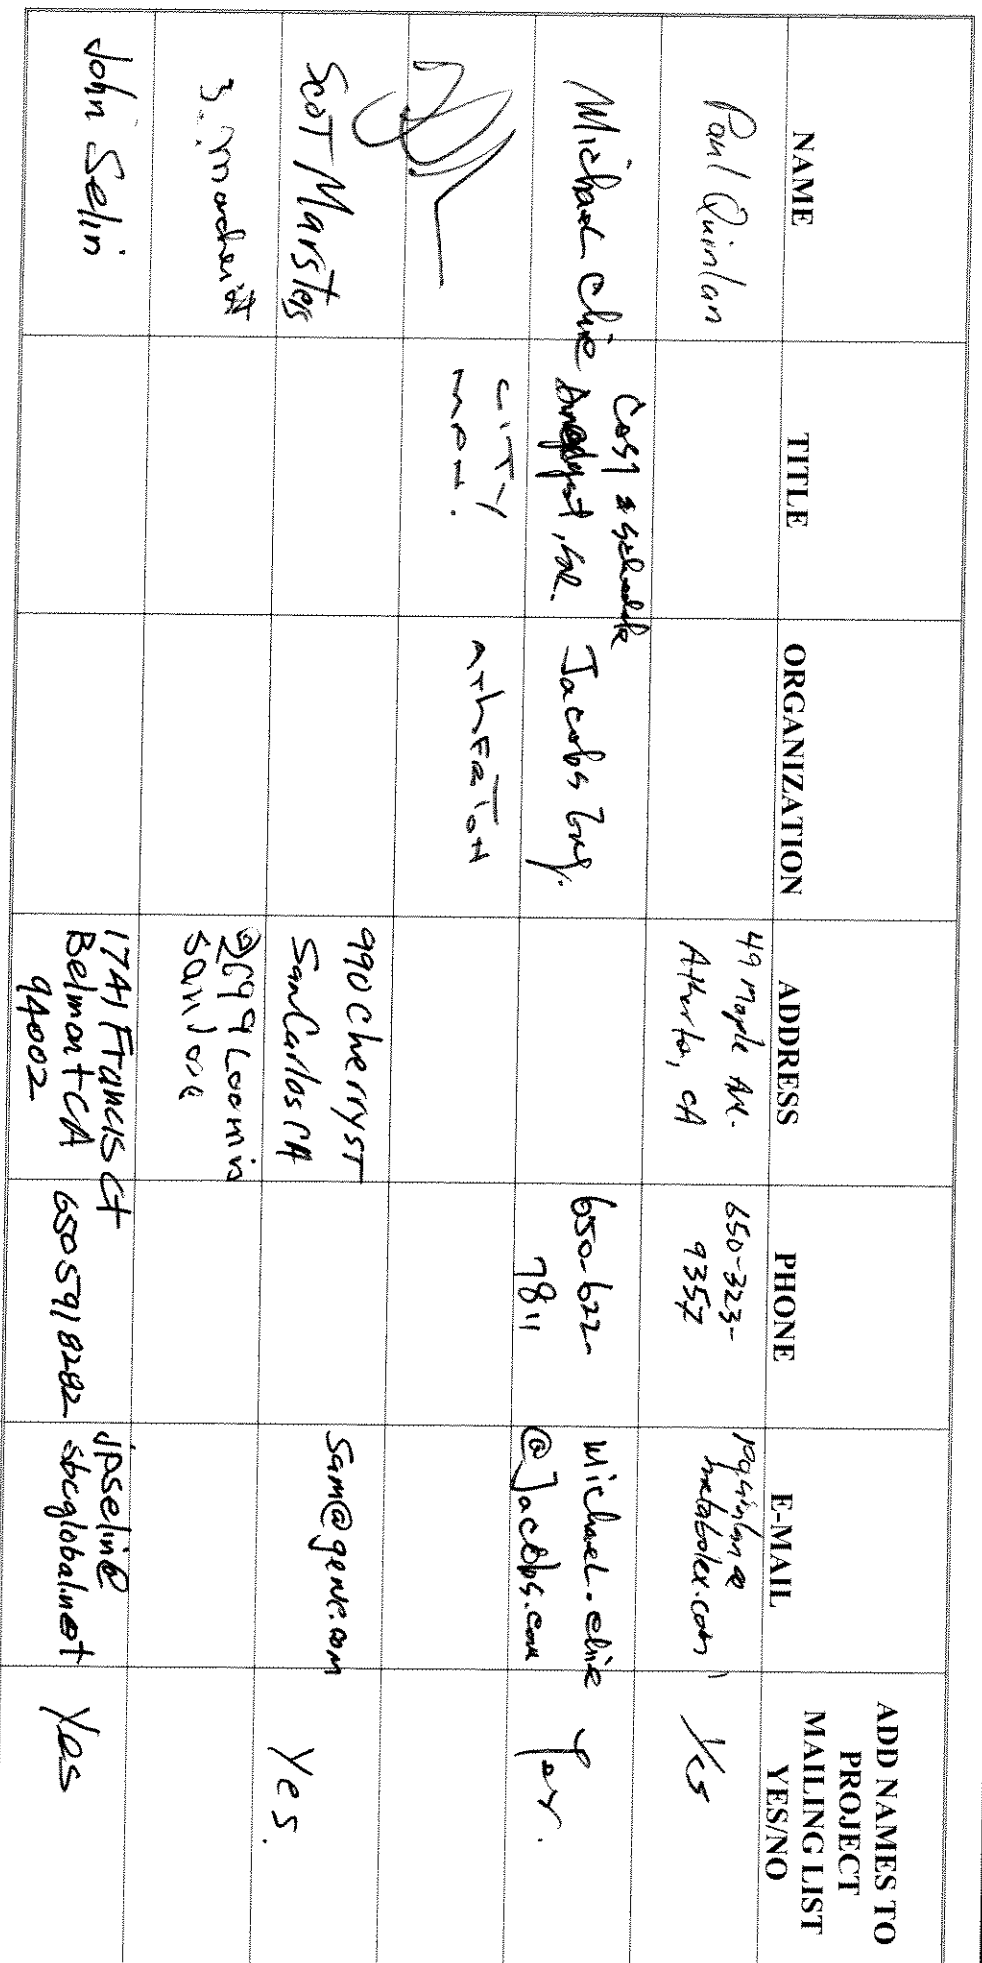 NAME
TITLE
ORGANIZATION
ADDRESS
PHONE
E-MAIL
ADD NAMES TO
PROJECT
MAILING LIST
YES/NO
Paul Quinlan
49 Maple Ave.
CA
650-323-
9357
pquinlan@
metabolex.com
Yes
Michael
Cost & schedule
Analyst, Sr.
Jacobs Eng.
650-622-
7811
@Jacobs.com
Yes.
CITY
MAN.
Atherton
Scot Marsters
990 Cherry ST
San Carlos CA
Yes.
Loomis
San Jose
John Selin
1741 Francis Ct
Belmont CA
94002
650 591 8282
jpselin@
sbcglobal.net
Yes